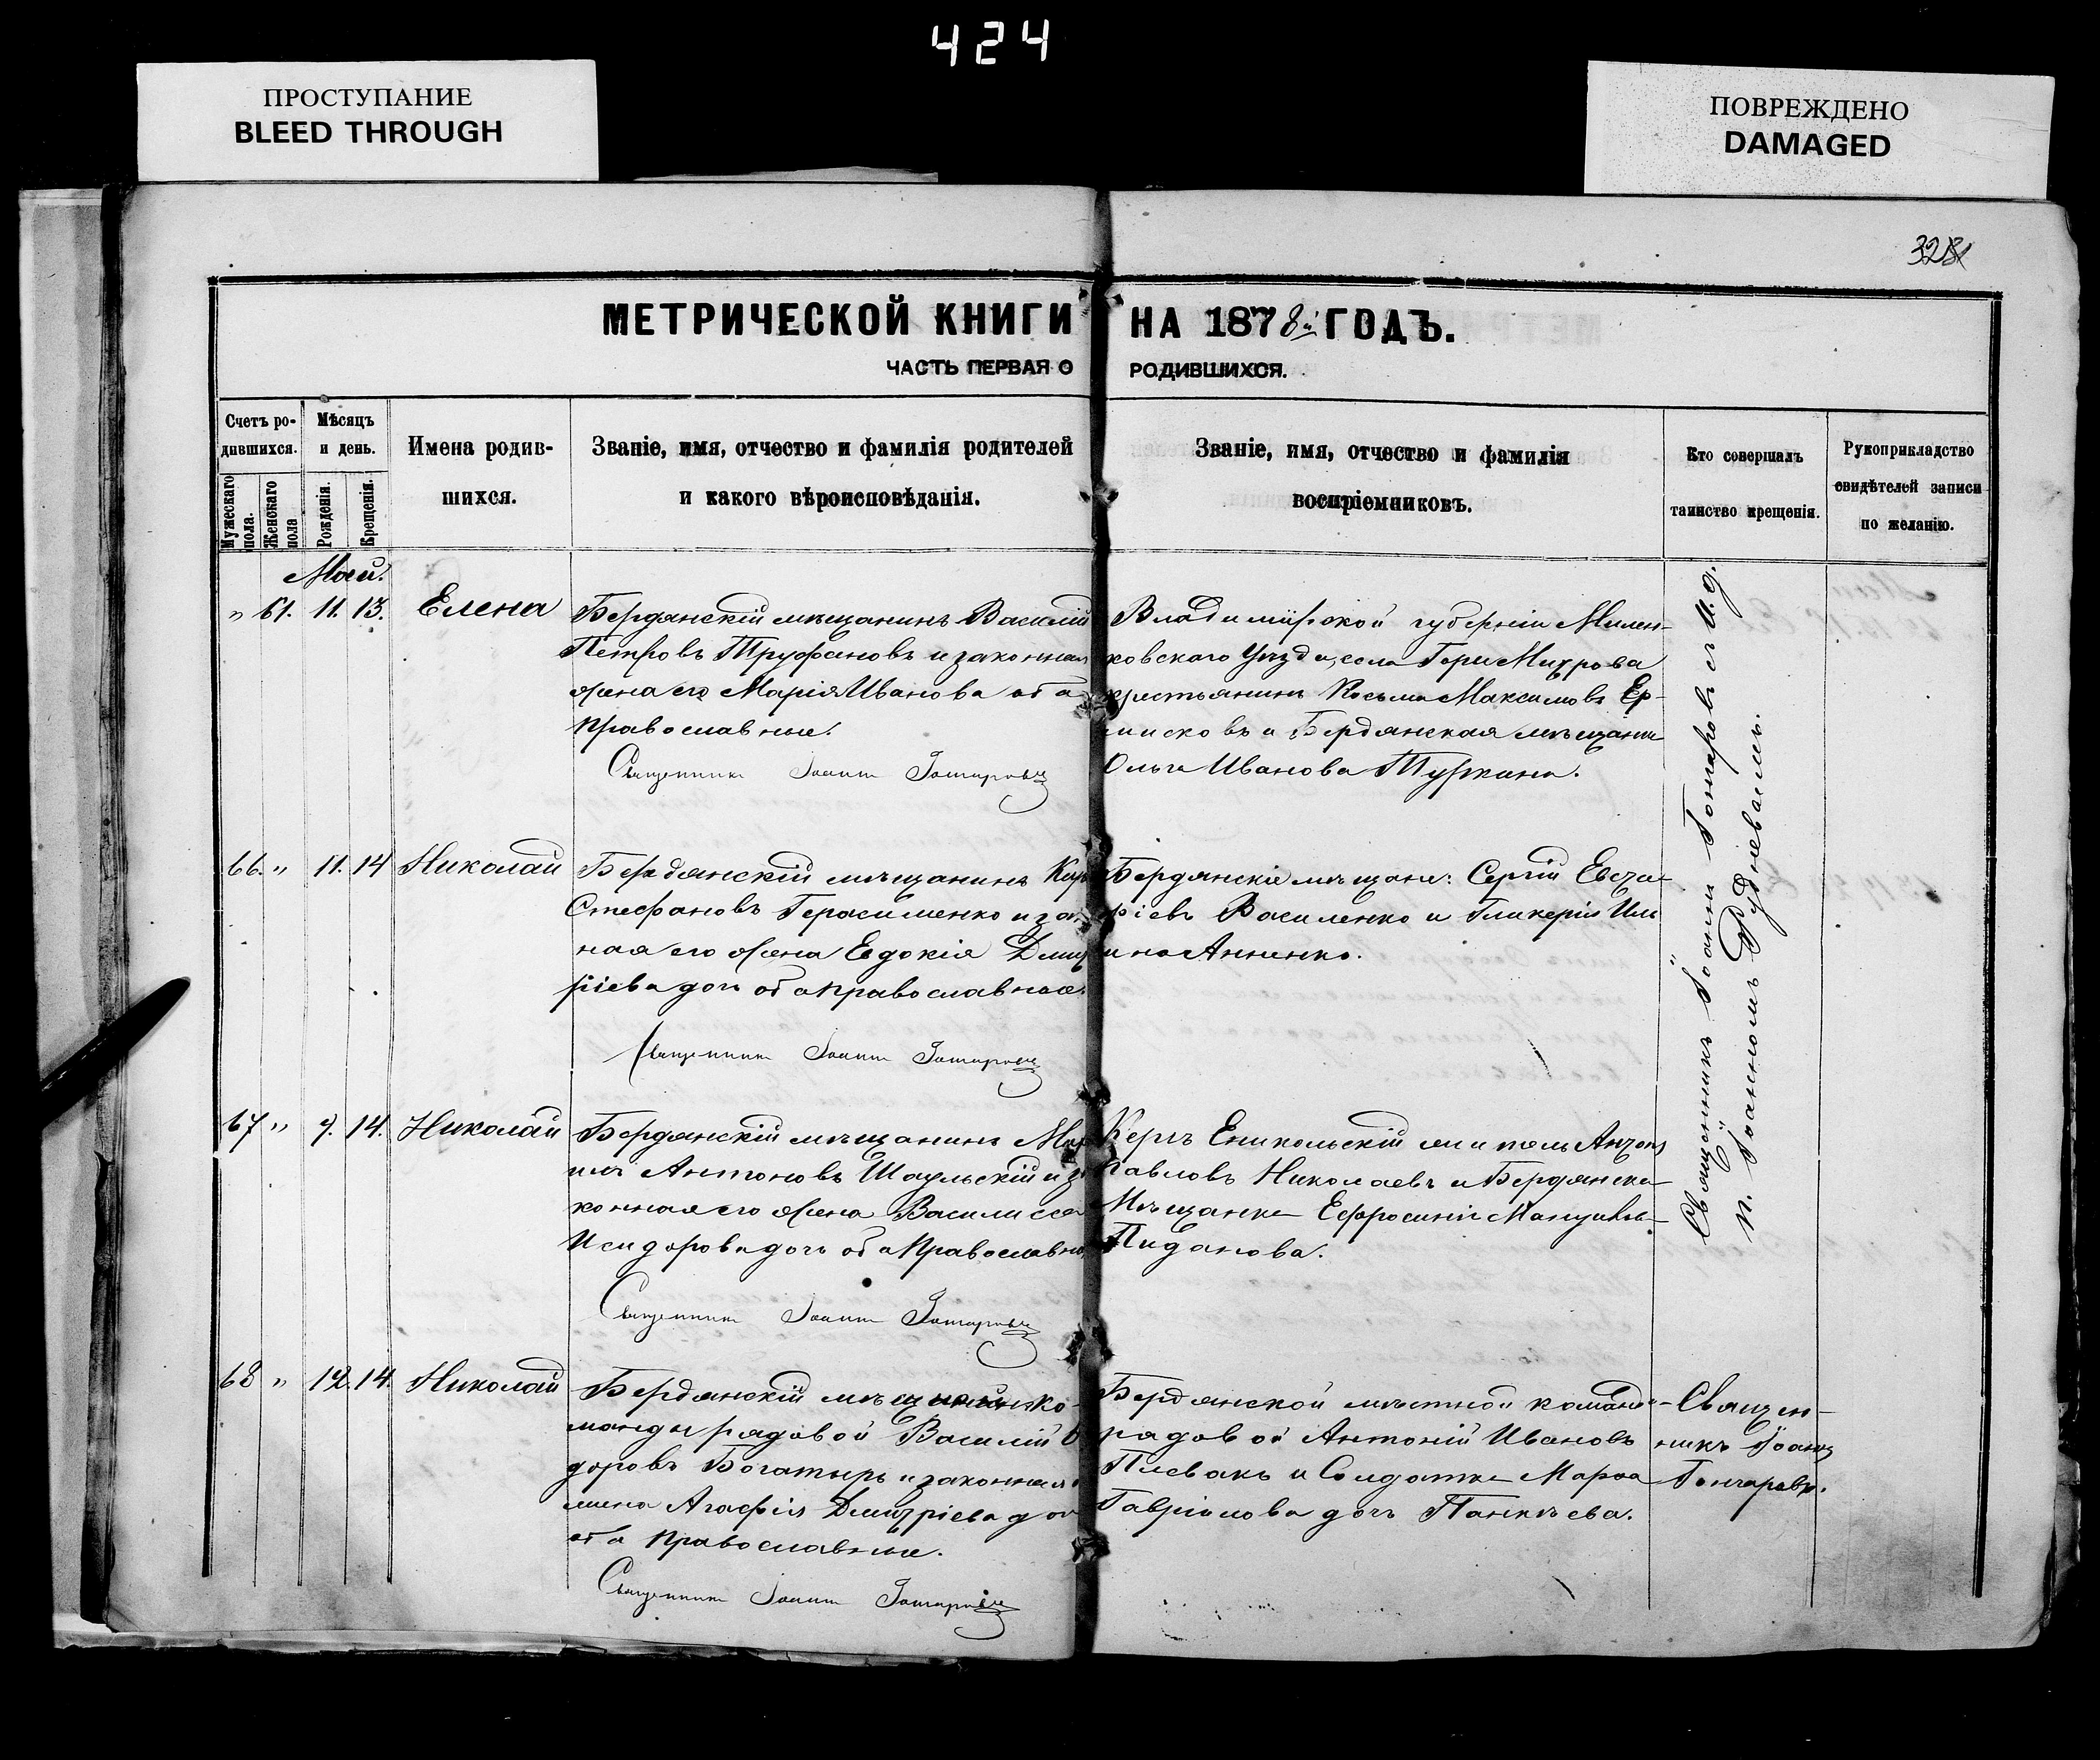 424
ПРОСТУПАНИЕ
BLEED THROUGH
ПОВРЕЖДЕНО
DAMAGED
МЕТРИЧЕСКОЙ КНИГИ НА 1878й ГОДЪ.
ЧАСТЬ ПЕРВАЯ О РОДИВШИХСЯ.
Счетъ ро-
дившихся.
Мужескаго пола.
Женскаго пола
Мѣсяцъ
и день.
Рожденія.
Крещенія.
Имена родив-
шихся.
Званіе, имя, отчество и фамилія родителей
и какого вѣроисповѣданія.
Званіе, имя, отчество и фамилія
воспріемниковъ.
Кто совершалъ
таинство крещенія.
Рукоприкладство
свидѣтелей записи
по желанію.
Май.
„ 61. 11. 13. Елена
Бердянскій мѣщанинъ Василій
Петровъ Труфановъ и законная
жена его Марія Иванова оба
православные.
Священникъ Іоаннъ Гончаровъ
Владимірской губерніи Мелен-
ковскаго Уѣзда, села
крестьянинъ Косьма Максимовъ Ер-
и Бердянская мѣщанка
Ольга Иванова
66. „ 11. 14 Николай
Бердянскій мѣщанинъ
Стефановъ Герасименко и за
ная его жена Евдокія Дмит
ріева дочь оба православные.
Священникъ Іоаннъ Гончаровъ
Бердянскіе мѣщане: Сергій Евста-
фіевъ Василенко и Гликерія Иль
ина Анненко.
67 „ 9. 14. Николай
Бердянскій мѣщанинъ
Антоновъ Шаульскій и за
конная его жена Василисса
Исидорова дочь оба Православны
Священникъ Іоаннъ Гончаровъ
Керчь Еникольскій житель Антонъ
Павловъ Николаевъ и Бердянска
Мѣщанка Ефросинія
Пиданова.
68 „ 12. 14. Николай
Бердянскій ко-
манды рядовой Василій
доровъ Богатырь и законная
жена Агафія Дмитріева доч
оба православные.
Священникъ Іоаннъ Гончаровъ
Бердянской мѣстной команды
рядовой Антоній Ивановъ
Плевакъ и Солдатка Марѳа
Гавріилова дочь Панкѣева.
Священникъ Іоаннъ Гончаровъ съ и. д.
п. Іоанномъ Рудневымъ.
Священ-
никъ Іоаннъ
Гончаровъ.